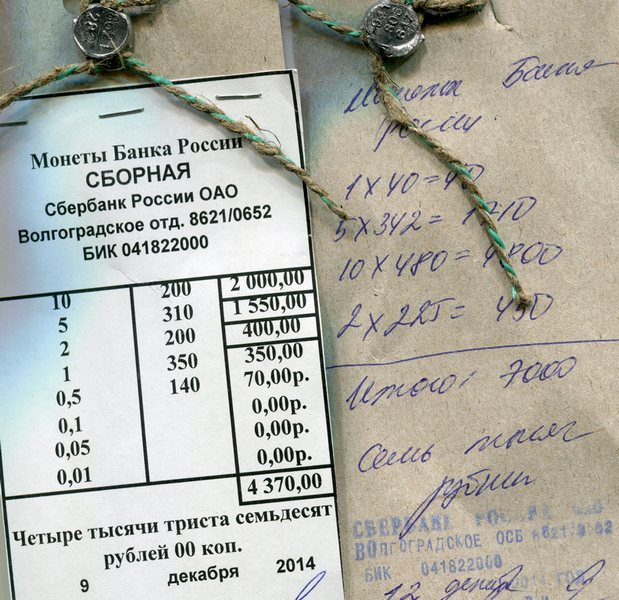 Монеты Банка России
СБОРНАЯ
Сбербанк России ОАО
Волгоградское отд. 8621/0652
БИК 041822000
10 200 2 000,00
5 310 1 550,00
2 200 400,00
1 350 350,00
0,5 140 70,00р.
0,1 0,00р.
0,05 0,00р.
0,01 0,00р.
4 370,00
Четыре тысячи триста семьдесят
рублей 00 коп.
9 декабря 2014
Монеты Банка
России
1 х 40 = 40
5 х 342 = 1710
10 х 480 = 4800
2 х 225 = 450
Итого: 7000
Семь тысяч
рублей
СБЕРБАНК РОССИИ ОАО
ВОЛГОГРАДСКОЕ ОСБ 8621
БИК 041822000
12 декабря